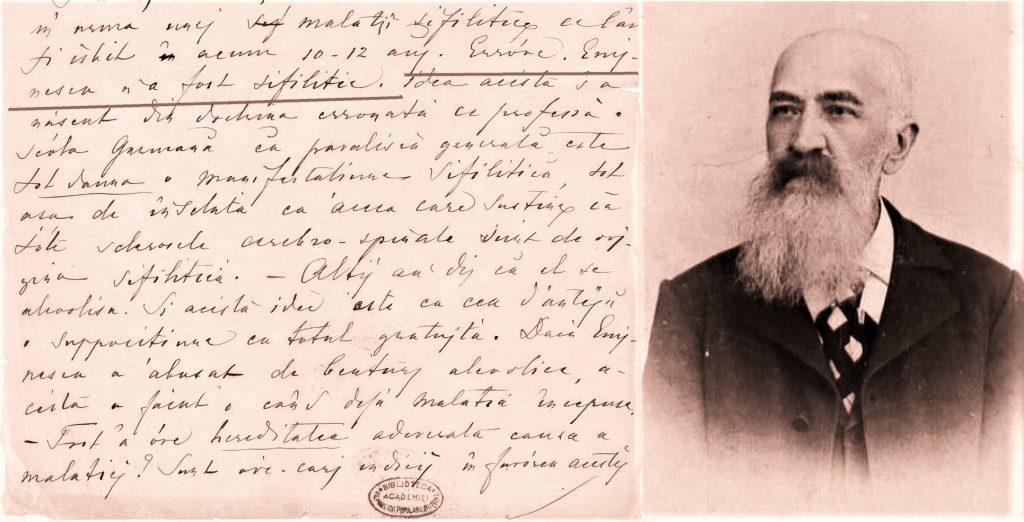 in urma unei maladii sifilitice ce l'ar
fi isbit acum 10-12 anĭ. Erróre. Emi-
nescu n'a fost sifilitic. Idea acésta s'a
născut din doctrina erronată ce professă
scóla Germană că paralisia generală este
tot danna o manifestatiune sifilitică, tot
asa de ca acea care sustine că
tóte sclerosele cerebro-spinale sunt de ori-
gina sifilitică. — Alțiĭ au dis că el se
alcolisa. Si acéstă idee este ca cea d'ântêjŭ
o suppositiune cu totul gratuĭtă. Dacă Emi-
nescu a abusat de beuturĭ alcolice, a-
césta a făcut'o când dejà malatia incepuse.
— Fost'a óre hereditatea adeverata causa a
malatieĭ? Sunt óre-carĭ indiciĭ în favórea acesteĭ
BIBLIOTECA
ACADEMIEI